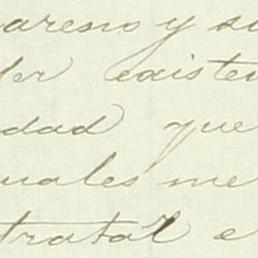 areno y su
der existen
dad que
uales me
tratál e